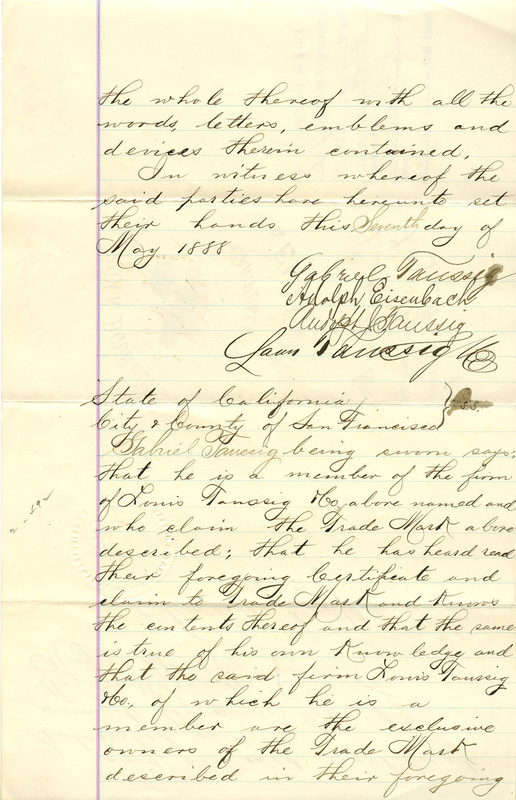 the whole thereof with all the
words, letters, emblems and
devices therein contained.
In witness whereof the
said parties have hereunto set
their hands this Seventh day of
May 1888
Gabriel Taussig
Adolph Eisenbach
Taussig
Louis Taussig & Co
State of California
City & County of San Francisco } ss.
Gabriel Taussig being sworn says:
that he is a member of the firm
of Louis Taussig & Co, above named and
who claim the Trade Mark above
described; that he has heard read
their foregoing Certificate and
claim to Trade Mark and knows
the contents thereof and that the same
is true of his own knowledge and
that the said firm Louis Taussig
& Co., of which he is a
member are the exclusive
owners of the Trade Mark
described in their foregoing